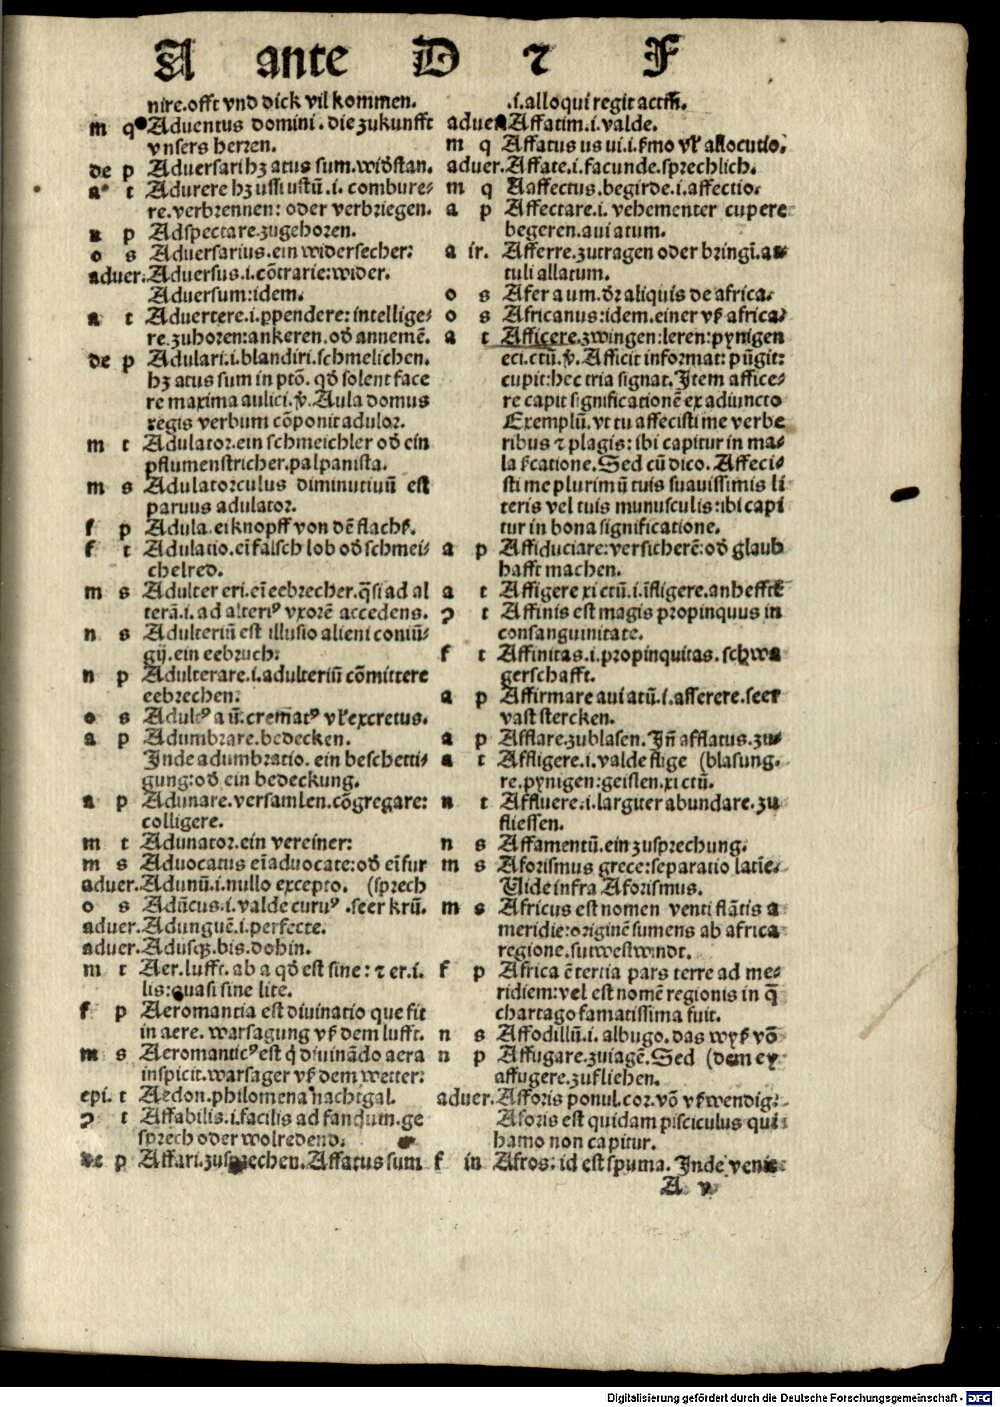 A ante D ⁊ F
nire.offt vnd dick vil kommen.
m q Aduentus domini.die zukunfft
vnsers herren.
de p Adversari hꝫ atus sum.widstan.
a t Adurere hꝫ ussi ustū.i. combure-
re.verbrennen: oder verbriegen.
n p Adspectare.zugehoren.
o s Adversarius.ein widersecher:
aduer. Aduersus.i.cōtrarie:wider.
Aduersum:idem.
a t Aduertere.i.ppendere:intellige-
re.zuhoren:ankeren.od annemē.
de p Adulari.i.blandiri.schmelichen.
hꝫ atus sum in ptō. qd solent face
re maxima aulici.ꝟ. Aula domus
regis verbum cōponit adulor.
m t Adulator.ein schmeichler od ein
pflumenstricher.palpanista.
m s Adulatorculus diminutiuū est
paruus adulator.
f p Adula.ei knopff von dē flachß.
f t Adulatio.eī falsch lob od schmei-
chelred.
m s Adulter eri.eī eebrecher.q̄si ad al
terā.i.ad alteriꝰ vxorē accedens.
n s Adulteriū est illusio alieni coniū-
gij.ein eebruch:
n p Adulterare.i.adulteriū cōmittere
eebrechen:
o s Adulꝰ a ū.crematꝰ vł excretus.
a p Adumbrare.bedecken.
Inde adumbratio. ein beschetti-
gung:od ein bedeckung.
a p Adunare.versamlen.cōgregare:
colligere.
m t Adunator.ein vereiner:
m s Aduocatus eī aduocate:od eī fur
aduer. Adunū.i.nullo excepto. (sprech
o s Adūcus.i.valde curuꝰ.seer krū.
aduer. Adunguē.i.perfecte.
aduer. Adusqꝫ.bis.dohin.
m t Aer.lufft.ab a qd est sine: ⁊ er.i.
lis:quasi sine lite.
f p Aeromantia est diuinatio que fit
in aere. warsagung vß dem lufft.
m s Aeromanticꝰ est q diuinādo aera
inspicit.warsager vß dem wetter:
epi. t Aedon.philomena nachtgal.
ꝯ t Affabilis.i.facilis ad fandum.ge
sprech oder wolredend.
de p Affari.zusprechen.Affatus sum
.i.alloqui regit actm̄.
aduer Affatim.i.valde.
m q Affatus us ui.i.ßmo vł allocutio.
aduer. Affate.i.facunde.sprechlich.
m q Aaffectus.begirde.i.affectio.
a p Affectare.i. vehementer cupere
begeren.aui atum.
a ir. Afferre.zutragen oder bringī.at
tuli allatum.
o s Afer a um.dr aliquis de africa.
o s Africanus:idem.einer vß africa.
a t Afficere.zwingen:leren:pynigen
eci.ctū.ꝟ. Afficit informat: pūgit:
cupit:hec tria signat.Item affice-
re capit significationē ex adiuncto
Exemplū.vt tu affecisti me verbe
ribus ⁊ plagis: ibi capitur in ma-
la ßcatione.Sed cū dico. Affeci-
sti me plurimū tuis suauissimis li
teris vel tuis munusculis:ibi capi
tur in bona significatione.
a p Affiduciare:versicherē:od glaub
hafft machen.
a t Affigere xi ctū.i.īfligere.anhefftē
ꝯ t Affinis est magis propinquus in
consanguinitate.
f t Affinitas.i.propinquitas.schwa
gerschafft.
a p Affirmare aui atū.i.asserere.seer
vast stercken.
a p Afflare.zublasen. Iñ afflatus.zu-
a t Affligere.i.valde flige (blasung.
re.pynigen:geislen.xi ctū.
n t Affluere.i.largiter abundare.zu
fliessen.
n s Affamentū.ein zusprechung.
m s Aforismus grece:separatio latīe.
Uide infra Aforismus.
m s Africus est nomen venti flātis a
meridie:originē sumens ab africa
regione.suwestwindt.
f p Africa ē tertia pars terre ad me-
ridiem:vel est nomē regionis in q̄
chartago famatissima fuit.
n s Affodillū.i.albugo.das wyß vō
n p Affugare.zuiagē.Sed (dem ey
affugere.zufliehen.
aduer. Afforis ponul.cor.vō vßwendig.
Aforis est quidam pisciculus qui
hamo non capitur.
f in Afros:id est spuma. Inde venie
A v
Digitalisierung gefördert durch die Deutsche Forschungsgemeinschaft - DFG